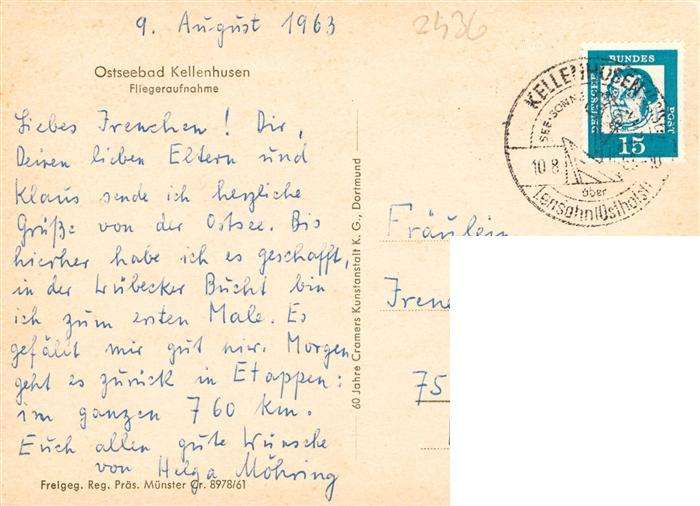 9. August 1963
2436
Ostseebad Kellenhusen
Fliegeraufnahme
Liebes Frenchen! Dir,
Deinen lieben Eltern und
Klaus sende ich herzliche
Grüße von der Ostsee. Bis
hierher habe ich es geschafft,
in der Lübecker Bucht bin
ich zum ersten Male. Es
gefällt mir gut hier. Morgen
geht es zurück in Etappen:
im ganzen 760 km.
Euch allen gute Wünsche
von Helga Möhring
Freigeg. Reg. Präs. Münster Gr. 8978/61
60 Jahre Cramers Kunstanstalt K. G., Dortmund
KELLENHUSEN
10.8
über
Lensahn (Ostholst)
DEUTSCHE
BUNDES
POST
15
Fräulein
Fren
75